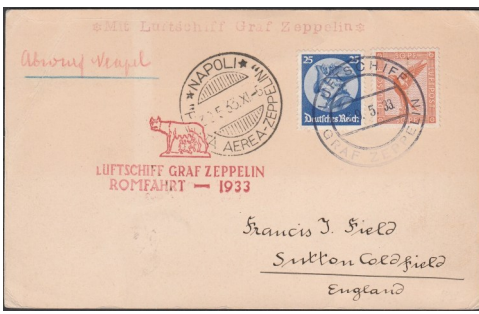 *Mit Luftschiff Graf Zeppelin*
Abwurf Neapel
*NAPOLI*
AEREA-ZEPPELIN
25 25
Deutsches Reich
LUFTSCHIFF
5. 33
GRAF ZEPPELIN
LUFTSCHIFF GRAF ZEPPELIN
ROMFAHRT — 1933
Francis J. Field
Sutton Coldfield
England